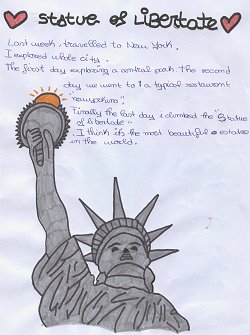 Statue of Libertate
Last week, i travelled to New York.
I explored whole city.
The first day exploring a central park. The second
day we went to a typical restaurant
"newyorkino".
Finally the last day i climbed the "Status
of libertade"
. I think it's the most beautiful estatue
in the world.